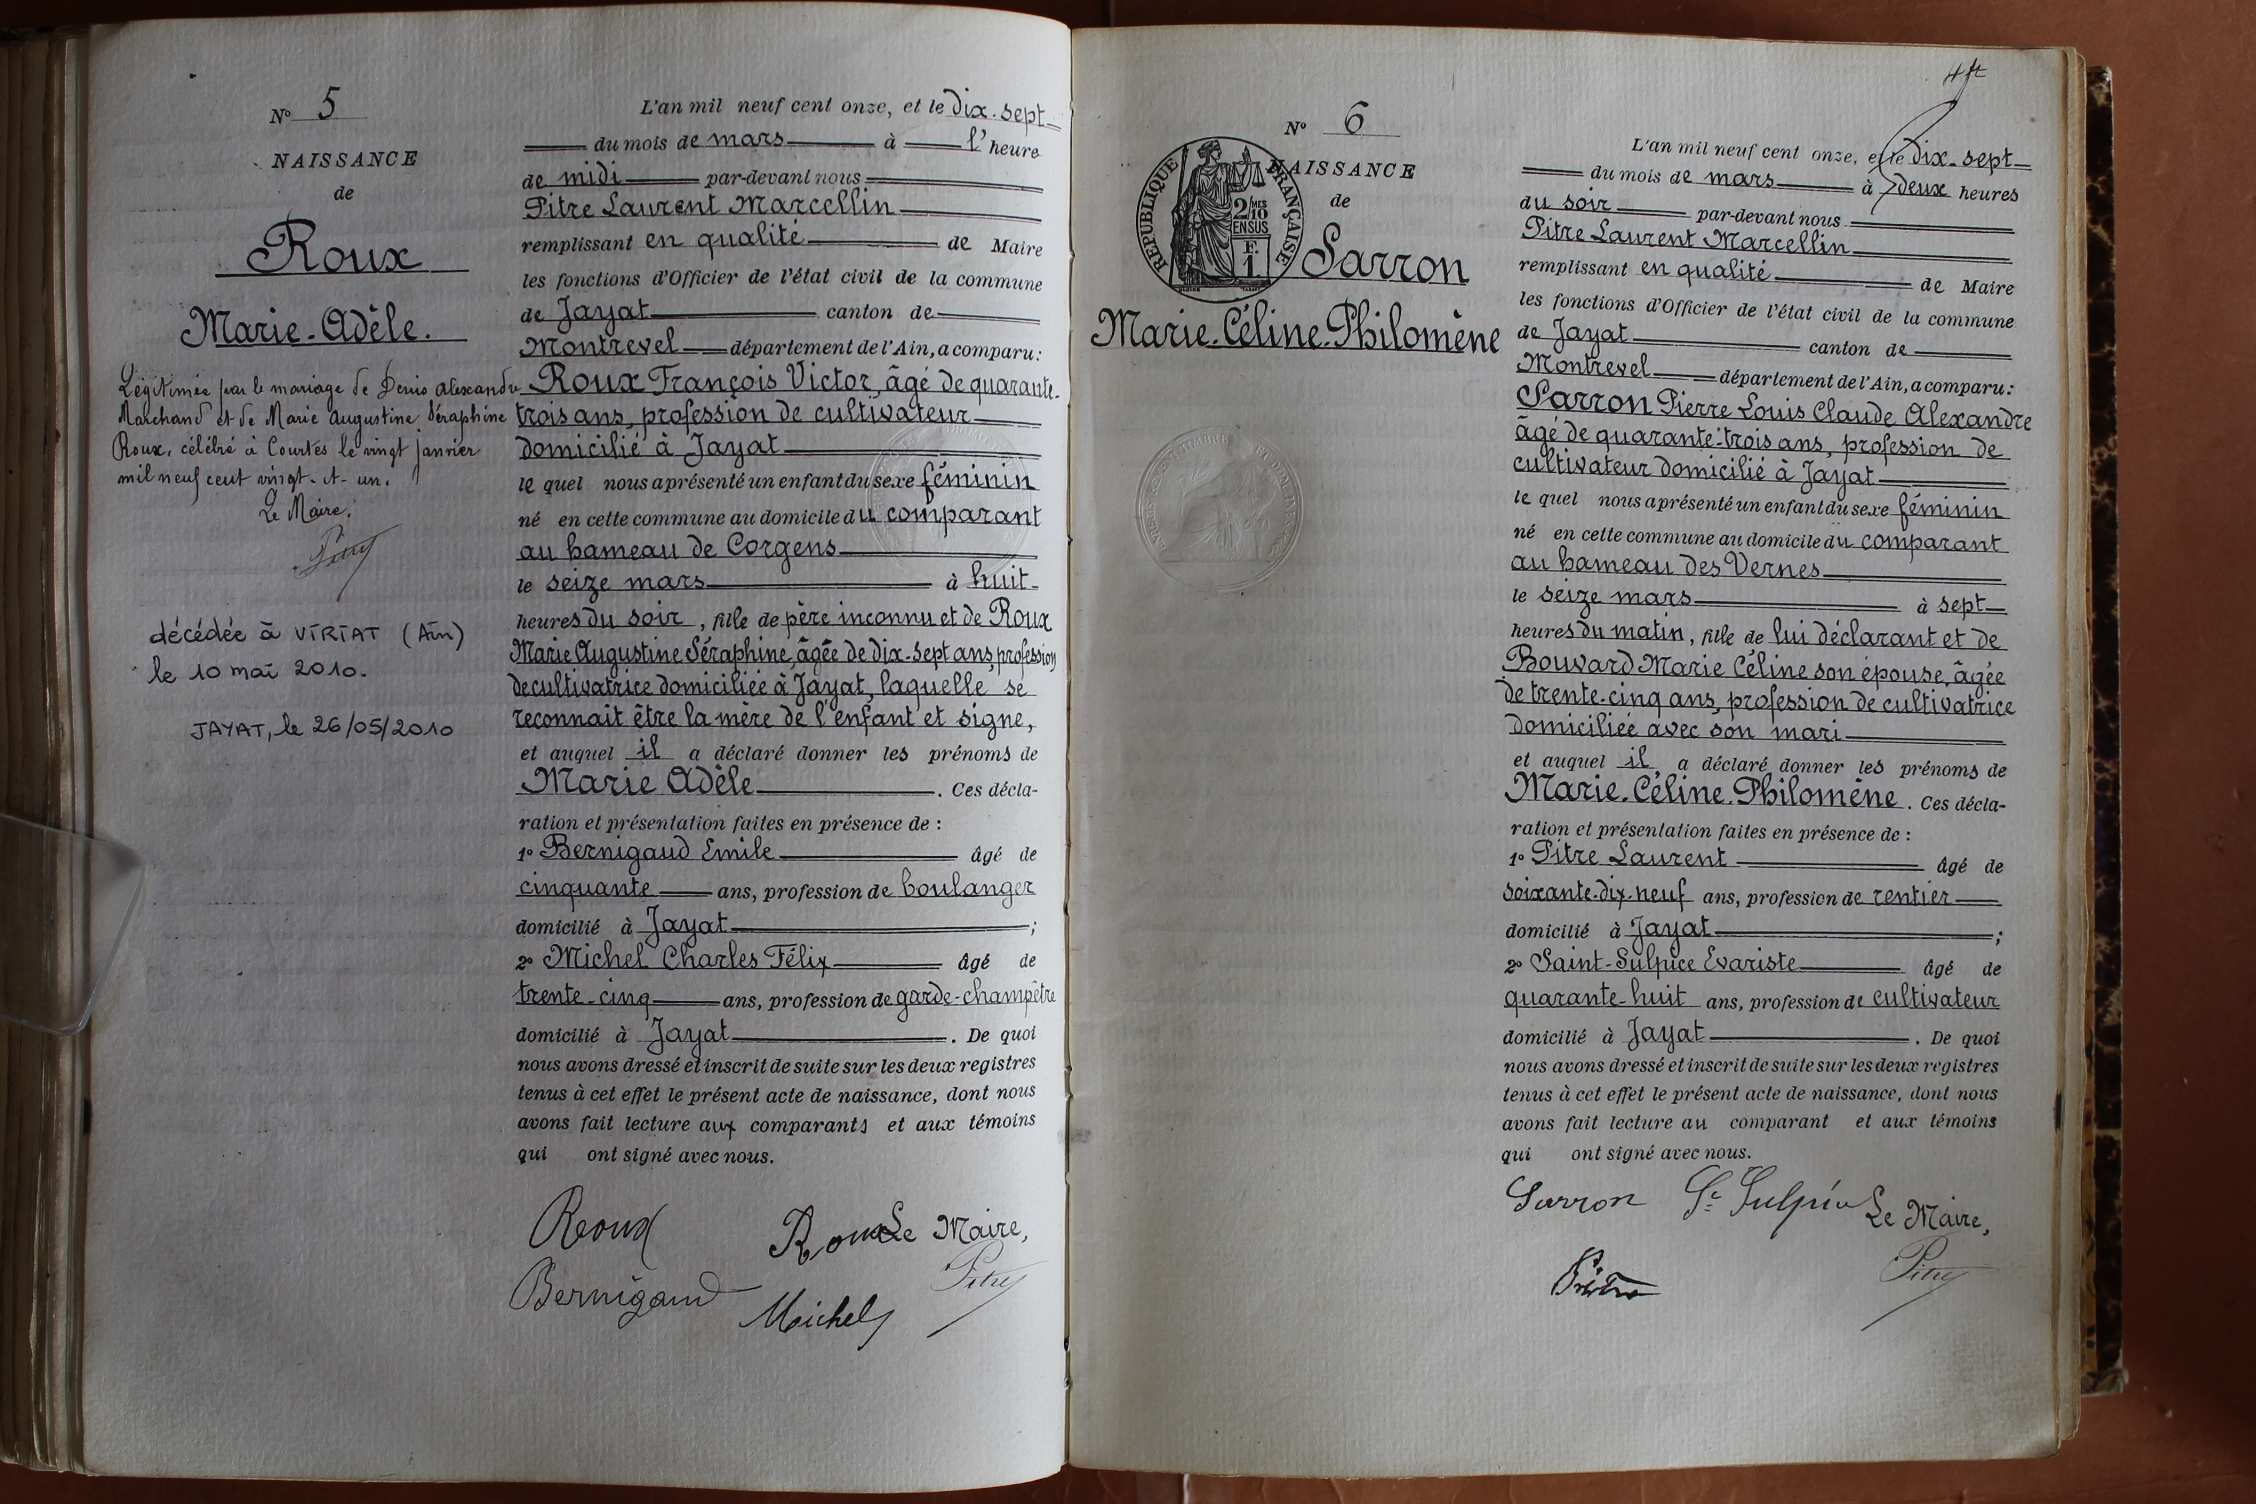 N° 5
NAISSANCE
de
Roux
Marie-Adèle.
Légitimée par le mariage de Denis Alexandre
Marchand et de Marie Augustine Séraphine
Roux, célébré à Courtes le vingt janvier
mil neuf cent vingt-et-un.
Le Maire,
Pitre
décédée à VIRIAT (Ain)
le 10 mai 2010.
JAYAT, le 26/05/2010
L'an mil neuf cent onze, et le dix-sept
du mois de mars à l'heure
de midi par-devant nous
Pitre Laurent Marcellin
remplissant en qualité de Maire
les fonctions d'Officier de l'état civil de la commune
de Jayat canton de
Montrevel département de l'Ain, a comparu:
Roux François Victor, âgé de quarante-
trois ans, profession de cultivateur
domicilié à Jayat
le quel nous a présenté un enfant du sexe féminin
né en cette commune au domicile du comparant
au hameau de Corgens
le seize mars à huit
heures du soir, fille de père inconnu et de Roux
Marie Augustine Séraphine, âgée de dix-sept ans, profession
de cultivatrice domiciliée à Jayat, laquelle se
reconnait être la mère de l'enfant et signe,
et auquel il a déclaré donner les prénoms de
Marie Adèle. Ces décla-
ration et présentation faites en présence de :
1° Bernigaud Emile âgé de
cinquante ans, profession de boulanger
domicilié à Jayat ;
2° Michel Charles Félix âgé de
trente-cinq ans, profession de garde-champêtre
domicilié à Jayat. De quoi
nous avons dressé et inscrit de suite sur les deux registres
tenus à cet effet le présent acte de naissance, dont nous
avons fait lecture aux comparants et aux témoins
qui ont signé avec nous.
Roux Roux Le Maire,
Bernigaud Michel Pitre
4 ft
N° 6
NAISSANCE
de
RÉPUBLIQUE FRANÇAISE
2/10 MES
EN SUS
F.
1
Sarron
Marie-Céline-Philomène
L'an mil neuf cent onze, et le dix-sept
du mois de mars à deux heures
du soir par-devant nous
Pitre Laurent Marcellin
remplissant en qualité de Maire
les fonctions d'Officier de l'état civil de la commune
de Jayat canton de
Montrevel département de l'Ain, a comparu:
Sarron Pierre Louis Claude Alexandre
âgé de quarante-trois ans, profession de
cultivateur domicilié à Jayat
le quel nous a présenté un enfant du sexe féminin
né en cette commune au domicile du comparant
au hameau des Vernes
le seize mars à sept
heures du matin, fille de lui déclarant et de
Bouvard Marie Céline son épouse, âgée
de trente-cinq ans, profession de cultivatrice
domiciliée avec son mari
et auquel il a déclaré donner les prénoms de
Marie-Céline-Philomène. Ces décla-
ration et présentation faites en présence de :
1° Pitre Laurent âgé de
soixante-dix-neuf ans, profession de rentier
domicilié à Jayat ;
2° Saint-Sulpice Evariste âgé de
quarante-huit ans, profession de cultivateur
domicilié à Jayat. De quoi
nous avons dressé et inscrit de suite sur les deux registres
tenus à cet effet le présent acte de naissance, dont nous
avons fait lecture au comparant et aux témoins
qui ont signé avec nous.
Sarron St Sulpice Le Maire,
Pitre Pitre